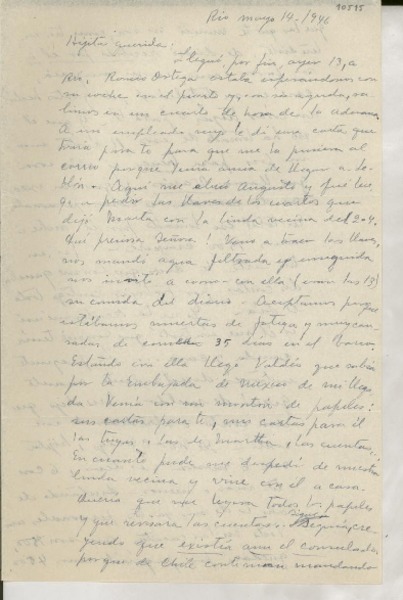 10515
Rio mayo 14-1946
Mijita querida:
Llegué, por fin, ayer 13, a
Rio. Ramón Ortega estaba esperándome con
su coche en el puerto y, con su ayuda, sa-
limos en un cuarto de hora de la Aduana.
A mi empleada muy le di una carta que
traía para ti para que me la pusiera al
correo porque tenía ansia de llegar a
Aquí me abrió Augusto y fué lue-
go a pedir las llaves de los cuartos que
dejó Marta con la linda vecina del 204.
Qué preciosa Señora! Vino a traer las llaves,
nos mandó agua filtrada y enseguida
nos invitó a comer con ella (eran las 13)
su comida del diario. Aceptamos porque
estábamos muertas de fatiga y muy can-
sadas de comer 35 días en el barco.
Estando con ella llegó Valdés que sabía
por la Embajada de México de mi llega-
da. Venía con un montón de papeles:
sus cartas para ti, mis cartas para él
las tuyas, las de Martha, las cuentas,
En cuanto pude me despedí de nuestra
linda vecina y vine con él a casa.
Quería que me leyera todos los papeles
y que revisara las cuentas. Seguía cre-
yendo que existía aun el consulado
porque de Chile continúan mandando